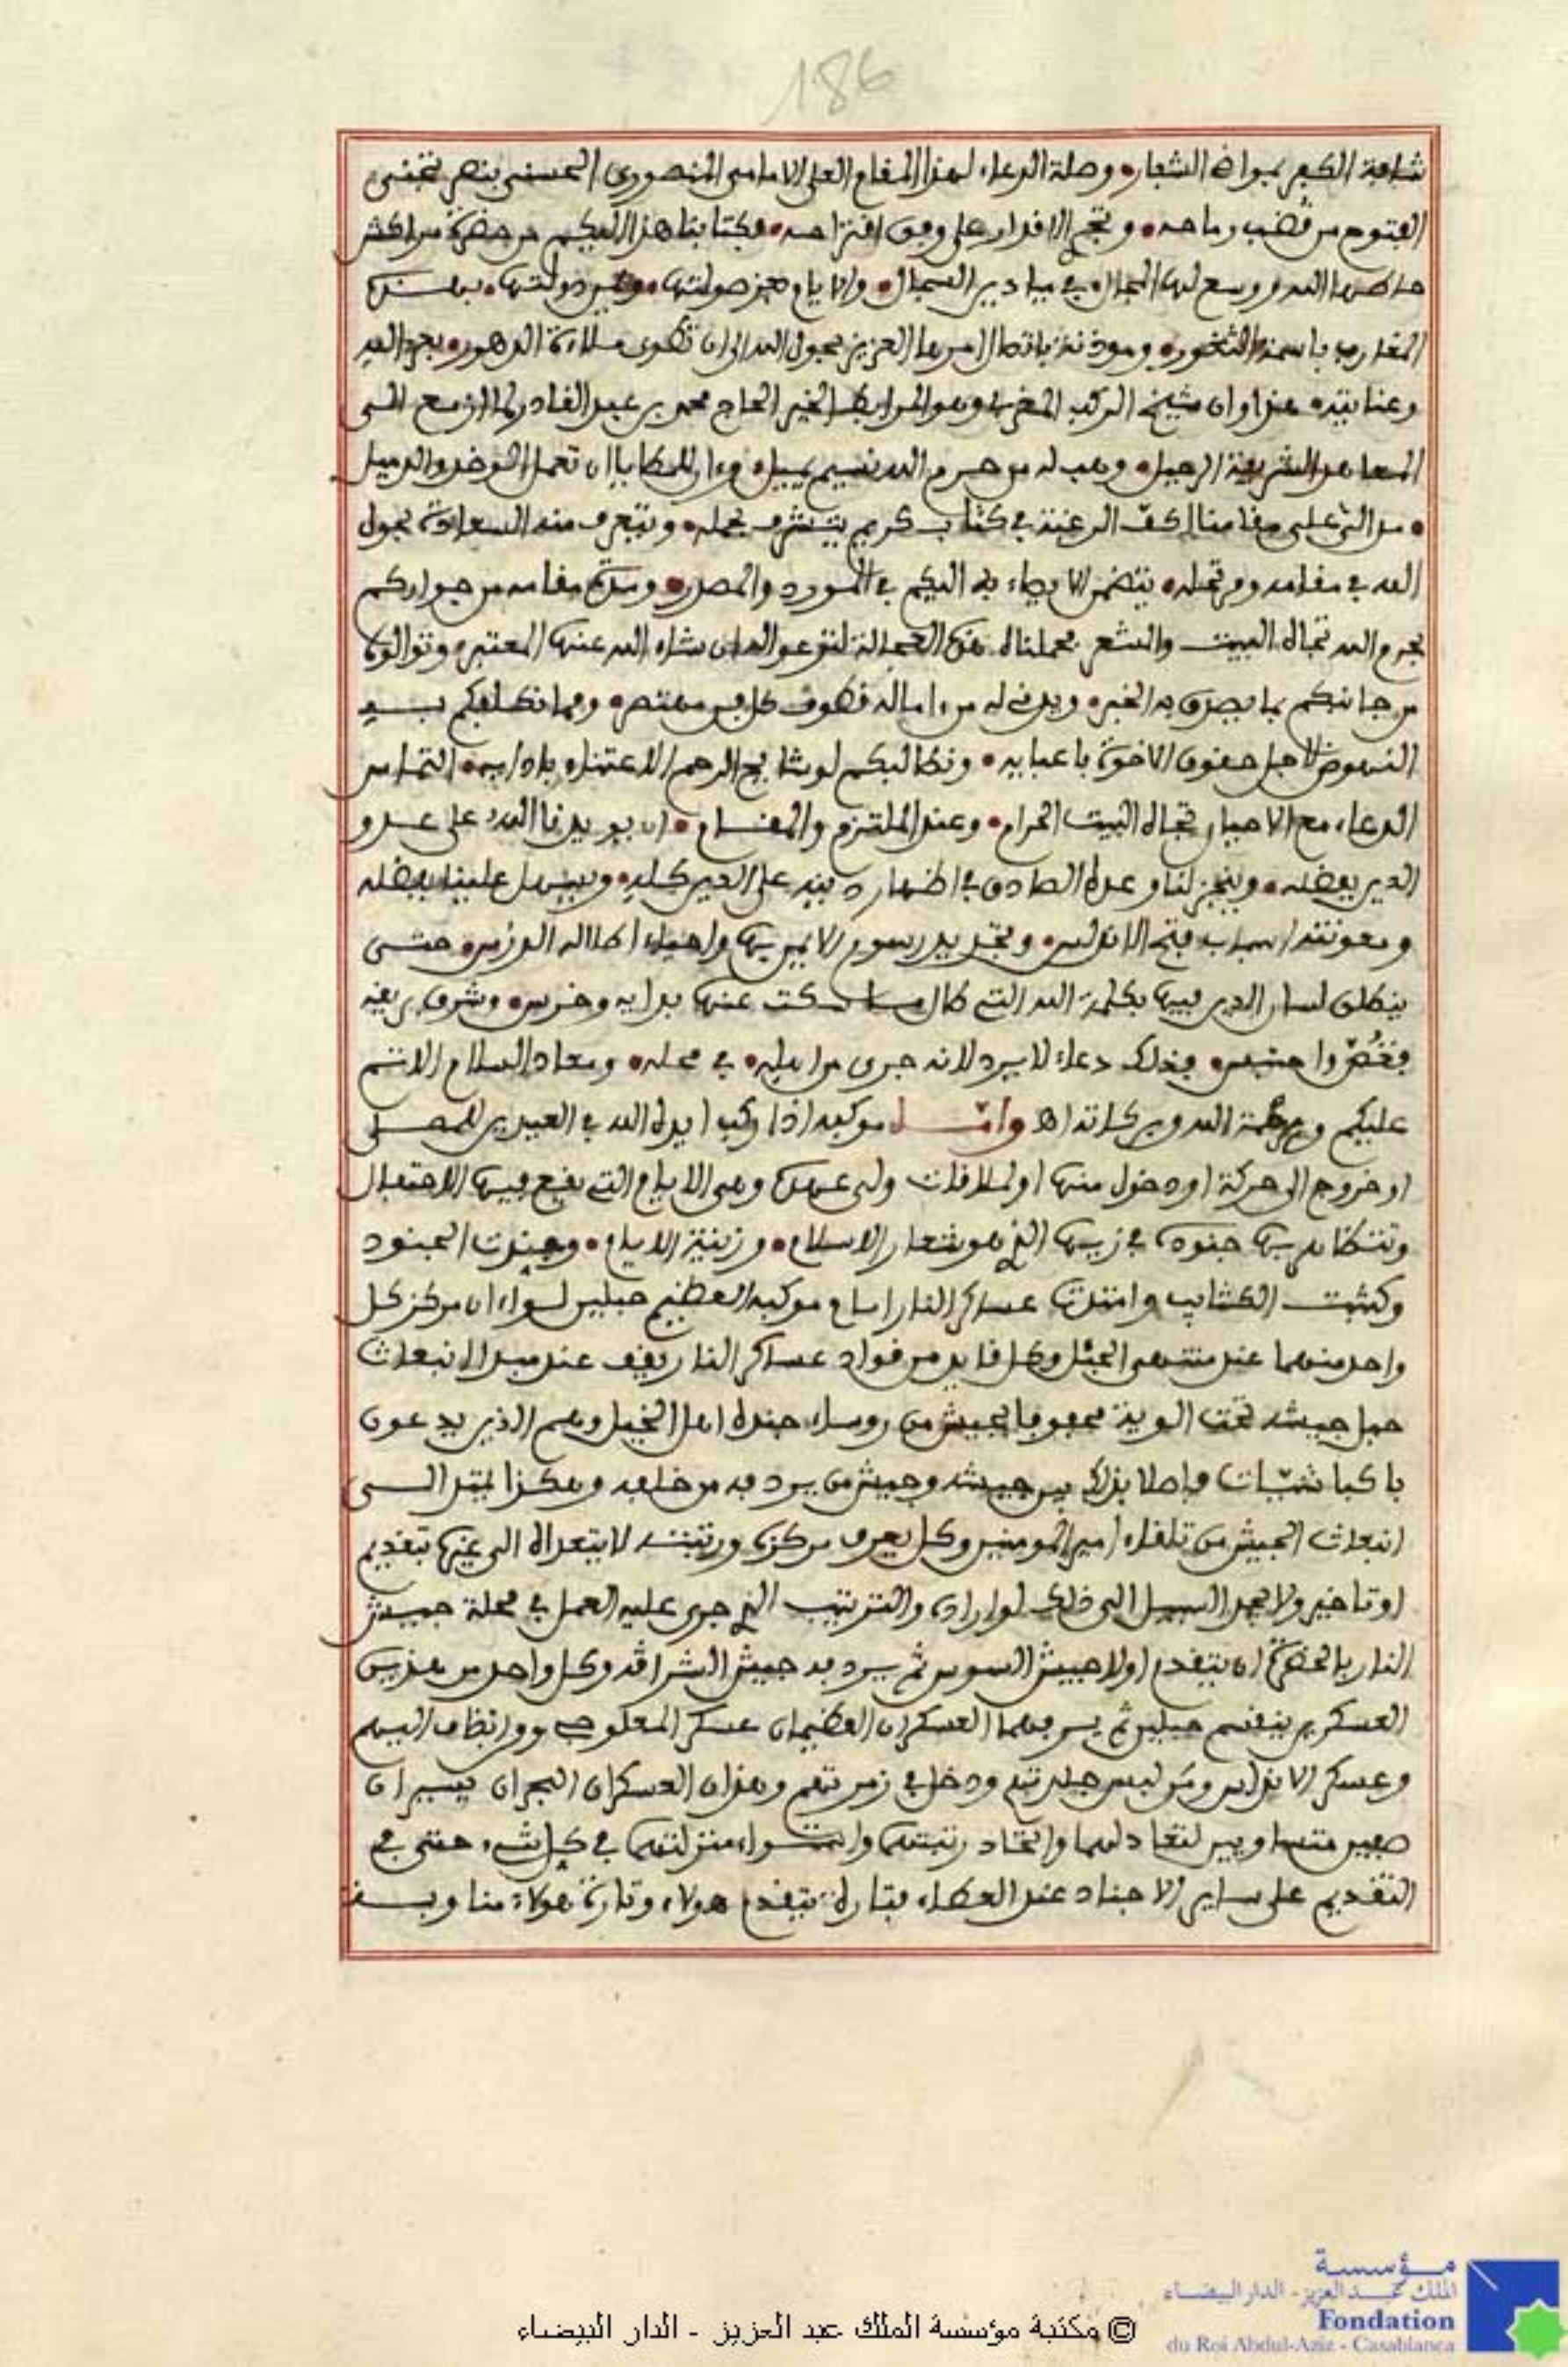 186
شافعة الكبر بمواضي الشعار • وصلة الدعاء لهذا المقام العلي الامامي المنصوري الحسني بنصر تجتنى
الفتوح من قضب رماحه • وتجري الاقدار على وفق اقتراحه • فكتابنا هذا اليكم من حضرة مراكش
حاطها الله ووسع لها المجال في ميادين السجال • والايام صولتها • دولتها •
المغارب باسمة الثغور • ومؤذنة باتصال امرها العزيز بحول الله الى ان تطوى ملاءة الدهور • بحمد الله
وعنايته • هذا وان شيخ الركب المغربي وهو المرابط الخير الحاج محمد بن عبد القادر لما ازمع الى
المعاهد الشريفة الرحيل • وهب له من حرم الله نسيم بليل • للمطايا ان تعمل الوخد والذميل
• مد الى على مقامنا اكف الرغبة في كتاب كريم يتشرف بحمله • ويتعرف منه السعادة بحول
الله في مقامه ومرتحله • يتضمن الايصاء به اليكم في المورد والمصدر • ومدة مقامه من جواركم
بحرم الله تجاه البيت والمشعر فحملناه هذه العجالة لتؤدعوا له ان شاء الله عنها المعتبر • وتوالوه
من جانبكم بما يصدق به الخبر • ويدني له من اماله قطوف كل فن مهتصر • ومما نكلفكم به
النهوض لاجل حقوق الاخوة باعبايه • ونطالبكم لوشايج الرحم الاعتناء بادايه • التماس
الدعاء مع الاحيان تجاه البيت الحرام • وعند الملتزم والمقام • ان يؤيدنا الله على عدو
الدين بفضله • وينجز لنا وعده الصادق في اظهار دينه على الدين كله • ويسهل علينا بفضله
ومعونته اسباب فتح الاندلس • وتجديد رسوم الايمن بها واحياء اطلاله الدرس • حتى
ينطق لسان الدين فيها بكلمة الله التي طال ما سكت عنها بداية وخرس • وشرق بريقه
فغص واحتبس • فذلك دعاء لا يرد لانه جرى من اهله • في محله • ومعاد السلام الاتم
عليكم ورحمة الله وبركاته اه وامـا موكبه اذا ركب ايده الله في العيدين للمصلى
او خروج الى حركة او دخول منها او لملاقات ولي عهده وهي الايام التي يقع فيها الاحتفال
وتتظاهر بها جنوده في زيها الذي هو شعار الاسلام • وزينة الايام • وجندت الجنود
وكتبت الكتايب وامتدت عساكر النار امام موكبه العظيم حبلين لسواءان مركز كل
واحد منهما عند منتهى الجبل وكل قايد من قواد عساكر النار يقف عند مبدا انبعاث
حبل جيشه تحت الوية محفوفا بجيش من روساء جنده اهل الخيل وهم الذين يدعون
باكباشيات فاصلا بذلك بين جيشه وجيش من يردفه من خلفه وهكذا يمتد الى
انبعاث الجيش من تلقاء امير المومنين وكل يعرف مركزه ورتبته لا يتعداه الى غيرها بتقديم
او تاخير ولا يجد السبيل الى ذلك لو اراده والترتيب الذي جرى عليه العمل في محلة جيش
النار بالحضرة ان يتقدم اولا جيش السوس ثم يردفه جيش الشراقة وكل واحد من هذين
العسكرين ينقسم حبلين ثم يردفهما العسكران العظيمان عسكر المعلوجي ووانضاف اليهم
وعسكر الاندلس ومن لبس جلدتهم ودخل في زمرتهم وهذان العسكران البحران يسيران
صفين متساويين لتعادلهما واتحاد رتبتهما واستواء منزلتهما في كل شيء حتى في
التقديم على ساير الاجناد عند العطاء فتارة يتقدم هولاء وتارة هولاء مناوبـة
© مكتبة مؤسسة الملك عبد العزيز - الدار البيضاء
مؤسسة
الملك عبد العزيز - الدار البيضاء
Fondation
du Roi Abdul-Aziz - Casablanca